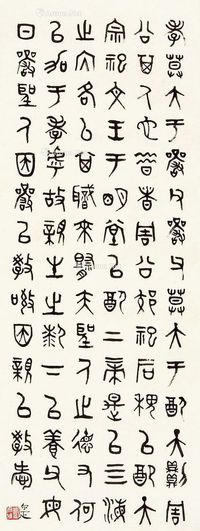 孝莫大于嚴父嚴父莫大于配天則周
公其人也昔者周公郊祀后稷以配天
宗祀文王于明堂以配上帝是以四海
之内各以其職來祭夫聖人之德又何
以加于孝乎故親生之膝下以養父母
日嚴聖人因嚴以教敬因親以教愛